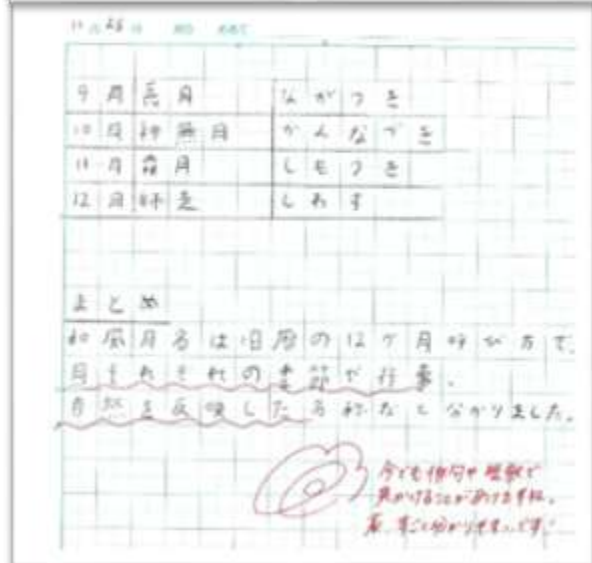 9月 長月 ながつき
10月 神無月 かんなづき
11月 霜月 しもつき
12月 師走 しわす
まとめ
和風月名は旧暦の12ヶ月呼び方で、
月それぞれの季節や行事、
自然を反映した名称だと分かりました。
今でも俳句や短歌で
見かけることがありますね。
表、すごく分かりやすいです!